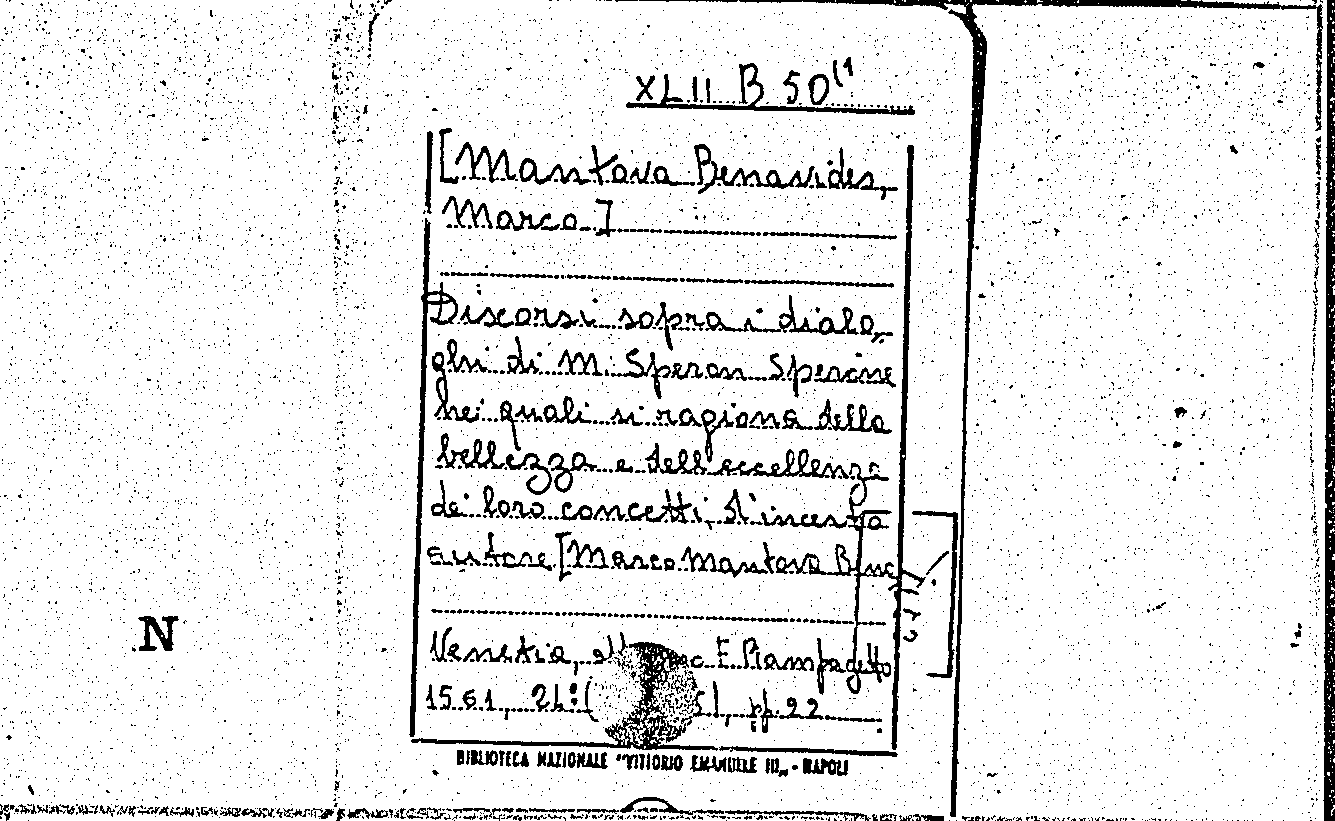 XLII B 50(1
[Mantova Benavides,
Marco]
Discorsi sopra i dialo„
ghi di M. Speron Sperone
nei quali si ragiona della
bellezza e dell'eccellenza
de' loro concetti, d'incerto
autore [Marco Mantova Bena
Venetia, E. Rampazetto
1561, 24°( ), pp. 22
BIBLIOTECA NAZIONALE "VITTORIO EMANUELE III„ - NAPOLI
N